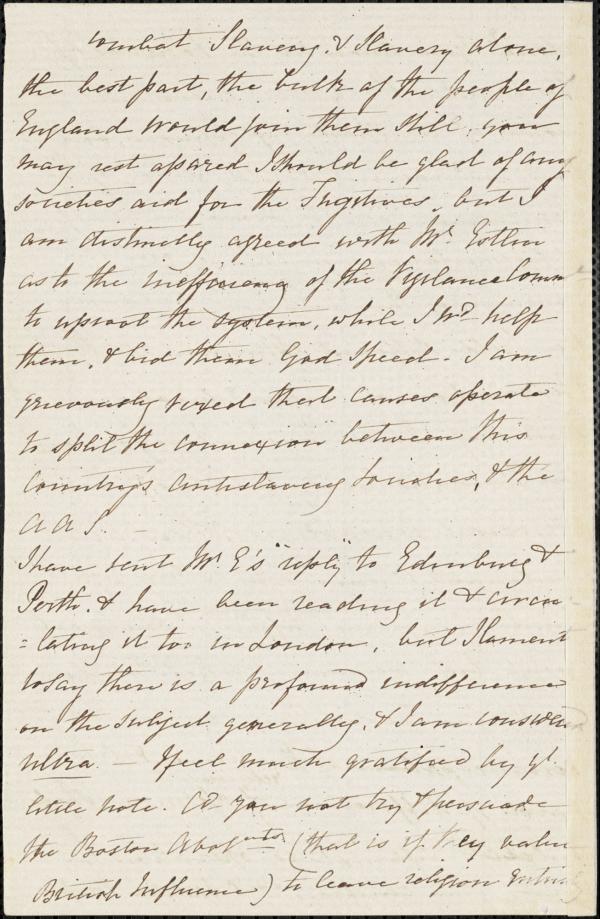 combat Slavery, & Slavery alone,
the best part, the bulk of the people of
England would join them still, you
may rest assured I should be glad of any
societies aid for the Fugitives, but I
am distinctly agreed with Mr. Estlin
as to the inefficiency of the Vigilance Comm
to uproot the system, while I wd. help
them, & bid them God speed - I am
grievously vexed that causes operate
to split the connexion between this
Country's antislavery Societies, & the
A A S. -
I have sent Mr. E's "reply" to Edinburg &
Perth. & have been reading it & circu
=lating it too in London, but I lament
to say there is a profound indifference
on the subject generally, & I am consider
ultra. - I feel much gratified by yr.
little note. Cd you not try & persuade
the Boston Abolnists (that is if they value
British Influence) to leave religion